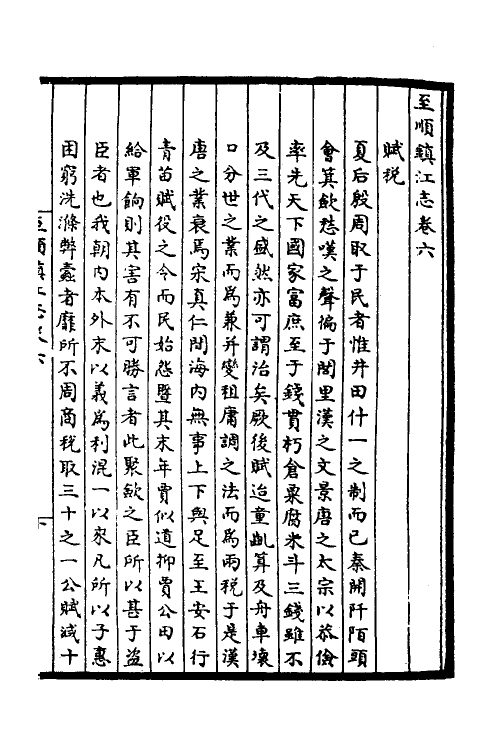 至順鎮江志卷六
賦税
夏后殷周取于民者惟井田什一之制而已秦開阡陌頭
會箕歛愁嘆之聲徧于閭里漢之文景唐之太宗以恭儉
率先天下國家富庶至于錢貫朽倉粟腐米斗三錢雖不
及三代之盛然亦可謂治矣厥後賦迨童齓算及舟車壞
口分世之業而爲兼并變租庸調之法而爲兩税于是漢
唐之業衰焉宋真仁間海内無事上下與足至王安石行
青苗賦役之令而民始怨暨其末年賈似道抑買公田以
給軍餉則其害有不可勝言者此聚歛之臣所以甚于盗
臣者也我朝内本外末以義爲利混一以來凡所以子惠
困窮洗滌弊蠹者靡所不周商税取三十之一公賦減十
至順鎮江志卷六